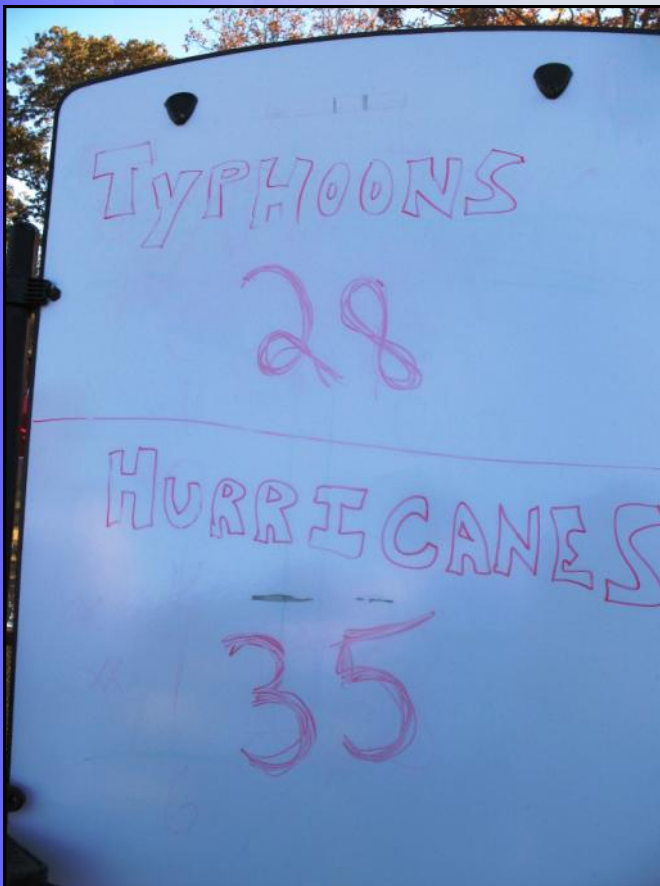 TYPHOONS
28
HURRICANES
35